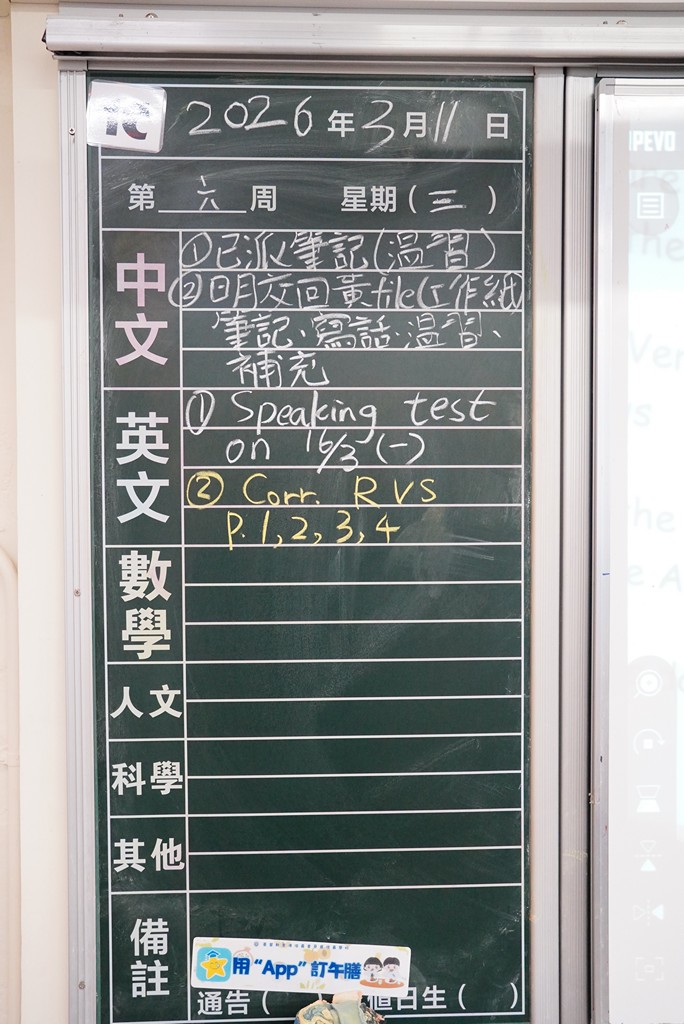 1C
2026年3月11日
第六周 星期(三)
中文
①已派筆記(温習)
②明交回黃file(工作紙,
筆記、寫話、温習、
補充
英文
① Speaking test
on 16/3 (一)
② Corr. RVS
P. 1, 2, 3, 4
數學
人文
科學
其他
備註
用“App”訂午膳
通告( 值日生( )
IPEVO